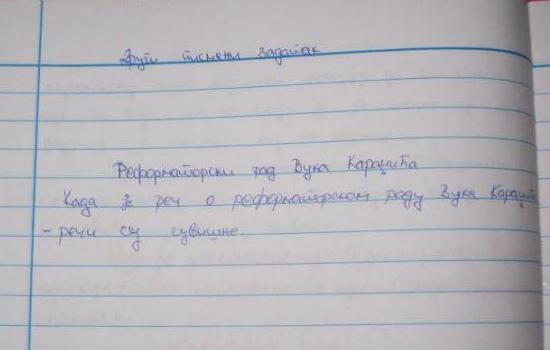 Други писмени задатак
Реформаторски рад Вука Караџића
Када је реч о реформаторском раду Вука Караџића
- речи су сувишне.